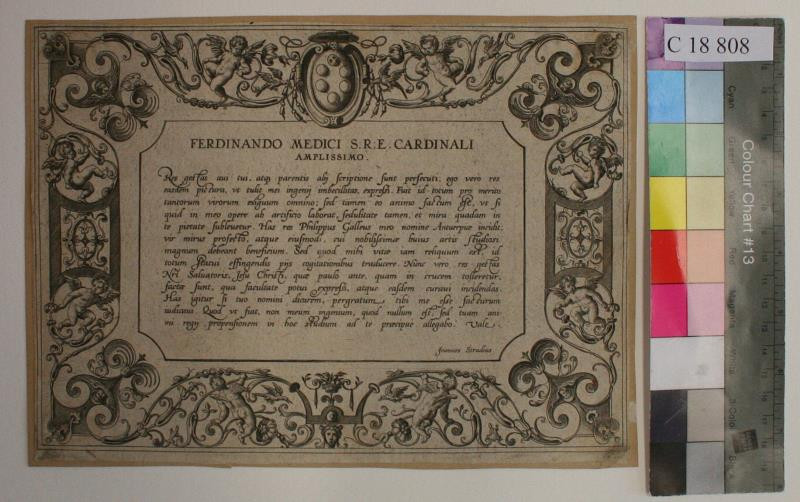 FERDINANDO MEDICI S.R.E. CARDINALI
AMPLISSIMO.
Res gestas aui tui, atq; parentis alij scriptione sunt persecuti: ego vero res
easdem pictura, vt tulit mei ingenij imbecillitas, expressi. Fuit id totum pro merito
tantorum virorum exiguum omnino; sed tamen eo animo factum est, vt si
quid in meo opere ab artificio laborat, sedulitate tamen, et mira quadam in
te pietate subleuetur. Has res Philippus Galleus meo nomine Antuerpiæ incidit,
vir mirus profecto, atque eiusmodi, cui nobilissimæ huius artis studiosi
magnum debeant beneficium. Sed quod mihi vitæ iam reliquum est, id
totum statui effingendis pijs cogitationibus traducere. Nunc vero res gestæ
Nri Saluatoris, Jesu Christi, quæ paulo ante, quam in crucem tolleretur,
factæ sunt, qua facultate potui expressi, atque easdem curaui incidendas.
Has igitur si tuo nomini dicarem, pergratum tibi me esse facturum
iudicaui. Quod vt fiat, non meum ingenium, quod nullum est, sed tuam ani-
mi regij propensionem in hoc studium ad te præcipue allegabo. Vale.
Joannes Stradius
C 18 808
Colour Chart #13
Cyan
Green
Yellow
Red
Magenta
White
3/Color
Black